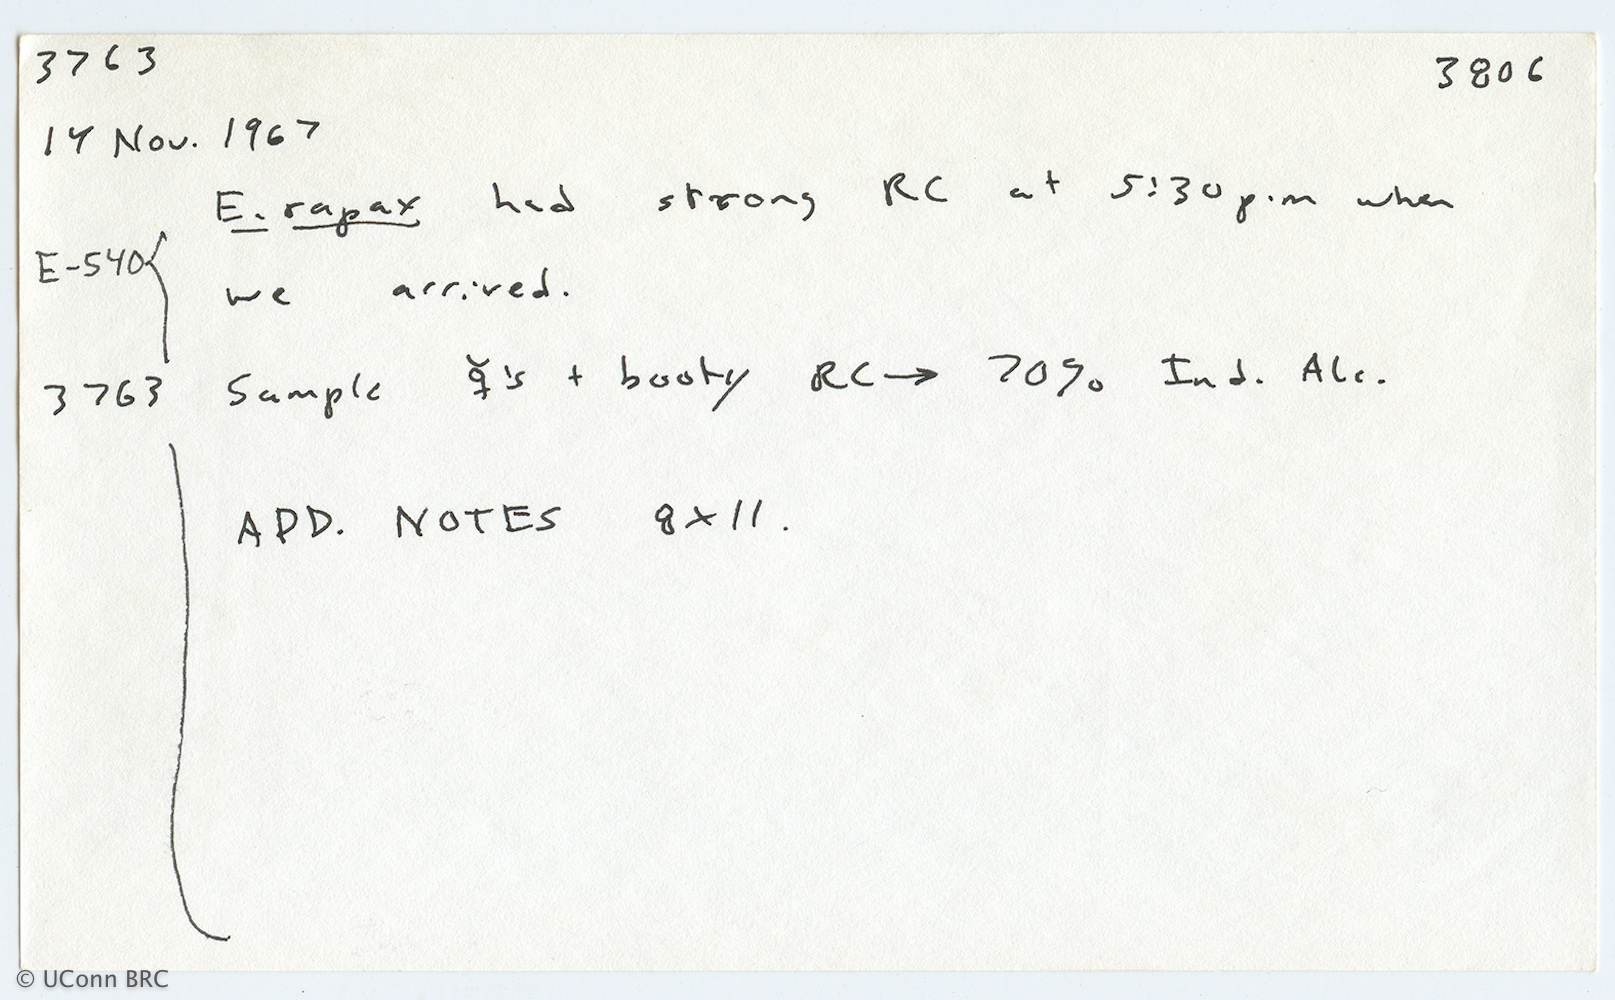 3763
3806
14 Nov. 1967
E. rapax had strong RC at 5:30 p.m when
E-540
we arrived.
3763 Sample ☿'s + booty RC → 70% Ind. Alc.
ADD. NOTES 8x11.
© UConn BRC